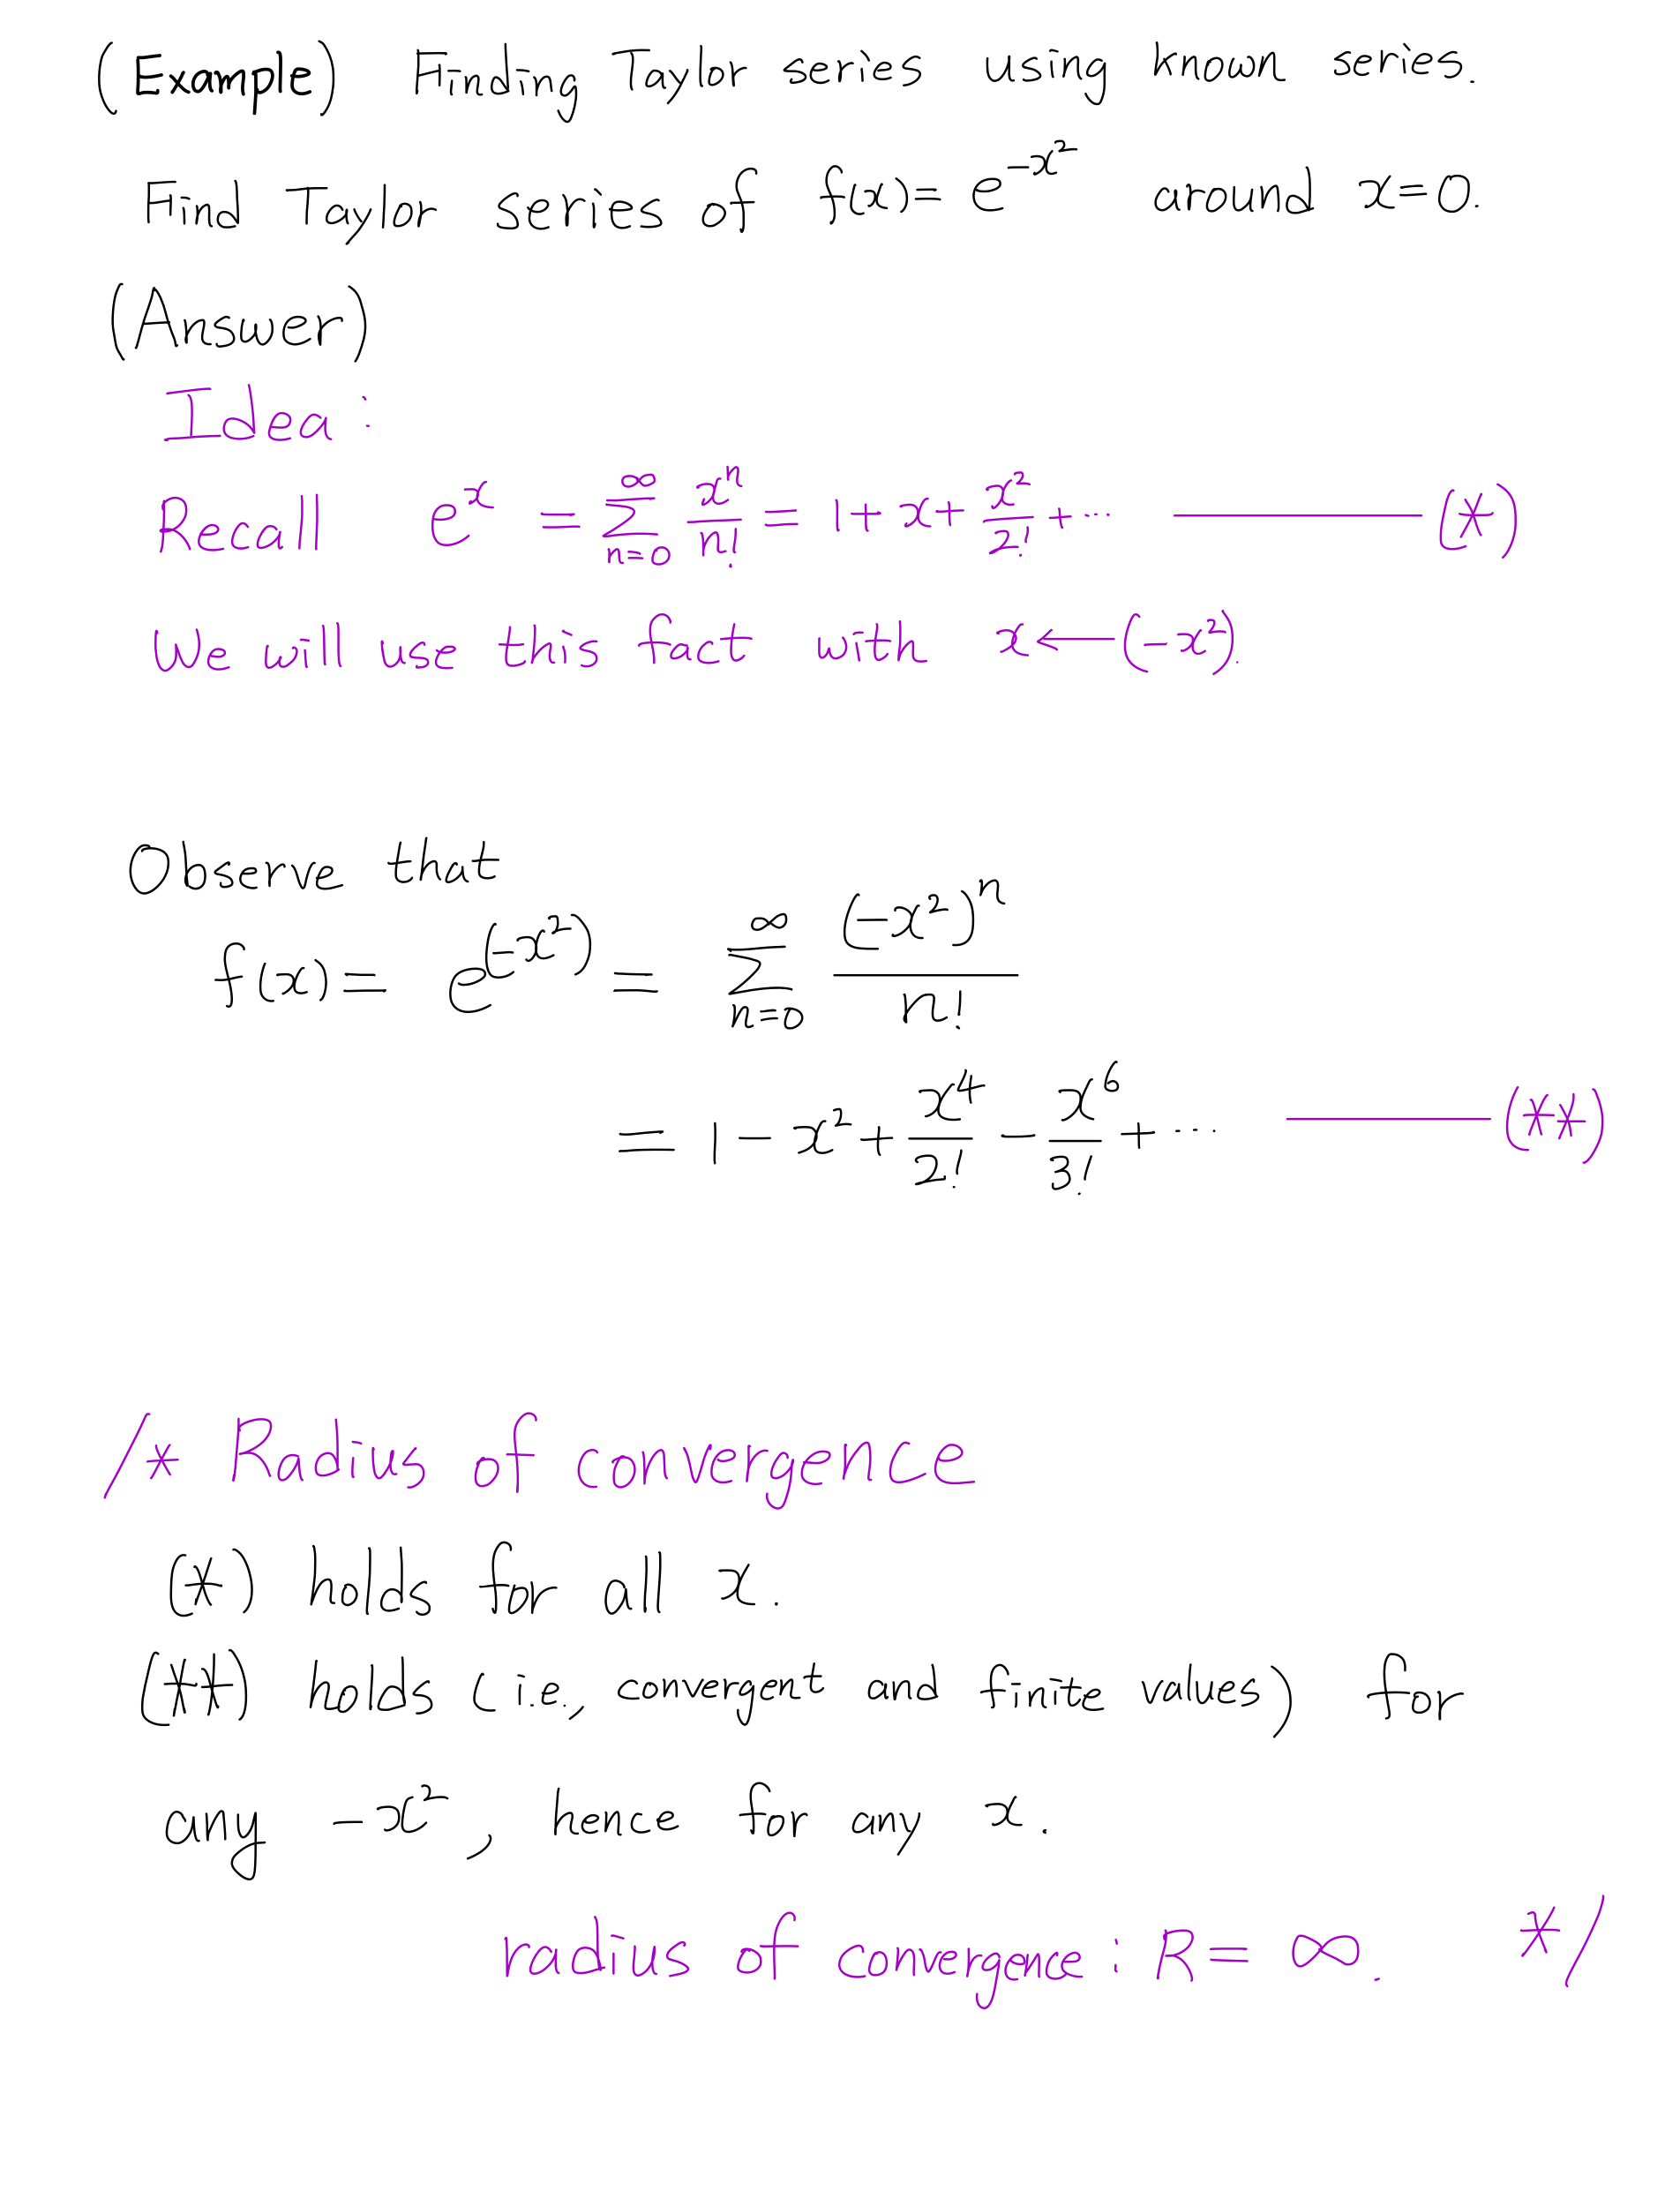 (Example) Finding Taylor series using known series.
Find Taylor series of f(x) = e^{-x^2} around x=0.
(Answer)
Idea:
Recall e^x = \sum_{n=0}^{\infty} \frac{x^n}{n!} = 1 + x + \frac{x^2}{2!} + ⋯ ——— (*)
We will use this fact with x ← (-x^2).
Observe that
f(x) = e^{(-x^2)} = \sum_{n=0}^{\infty} \frac{(-x^2)^n}{n!}
= 1 - x^2 + \frac{x^4}{2!} - \frac{x^6}{3!} + ⋯ ——— (**)
/* Radius of convergence
(*) holds for all x.
(**) holds (i.e., convergent and finite values) for
any -x^2, hence for any x.
radius of convergence: R = ∞. */